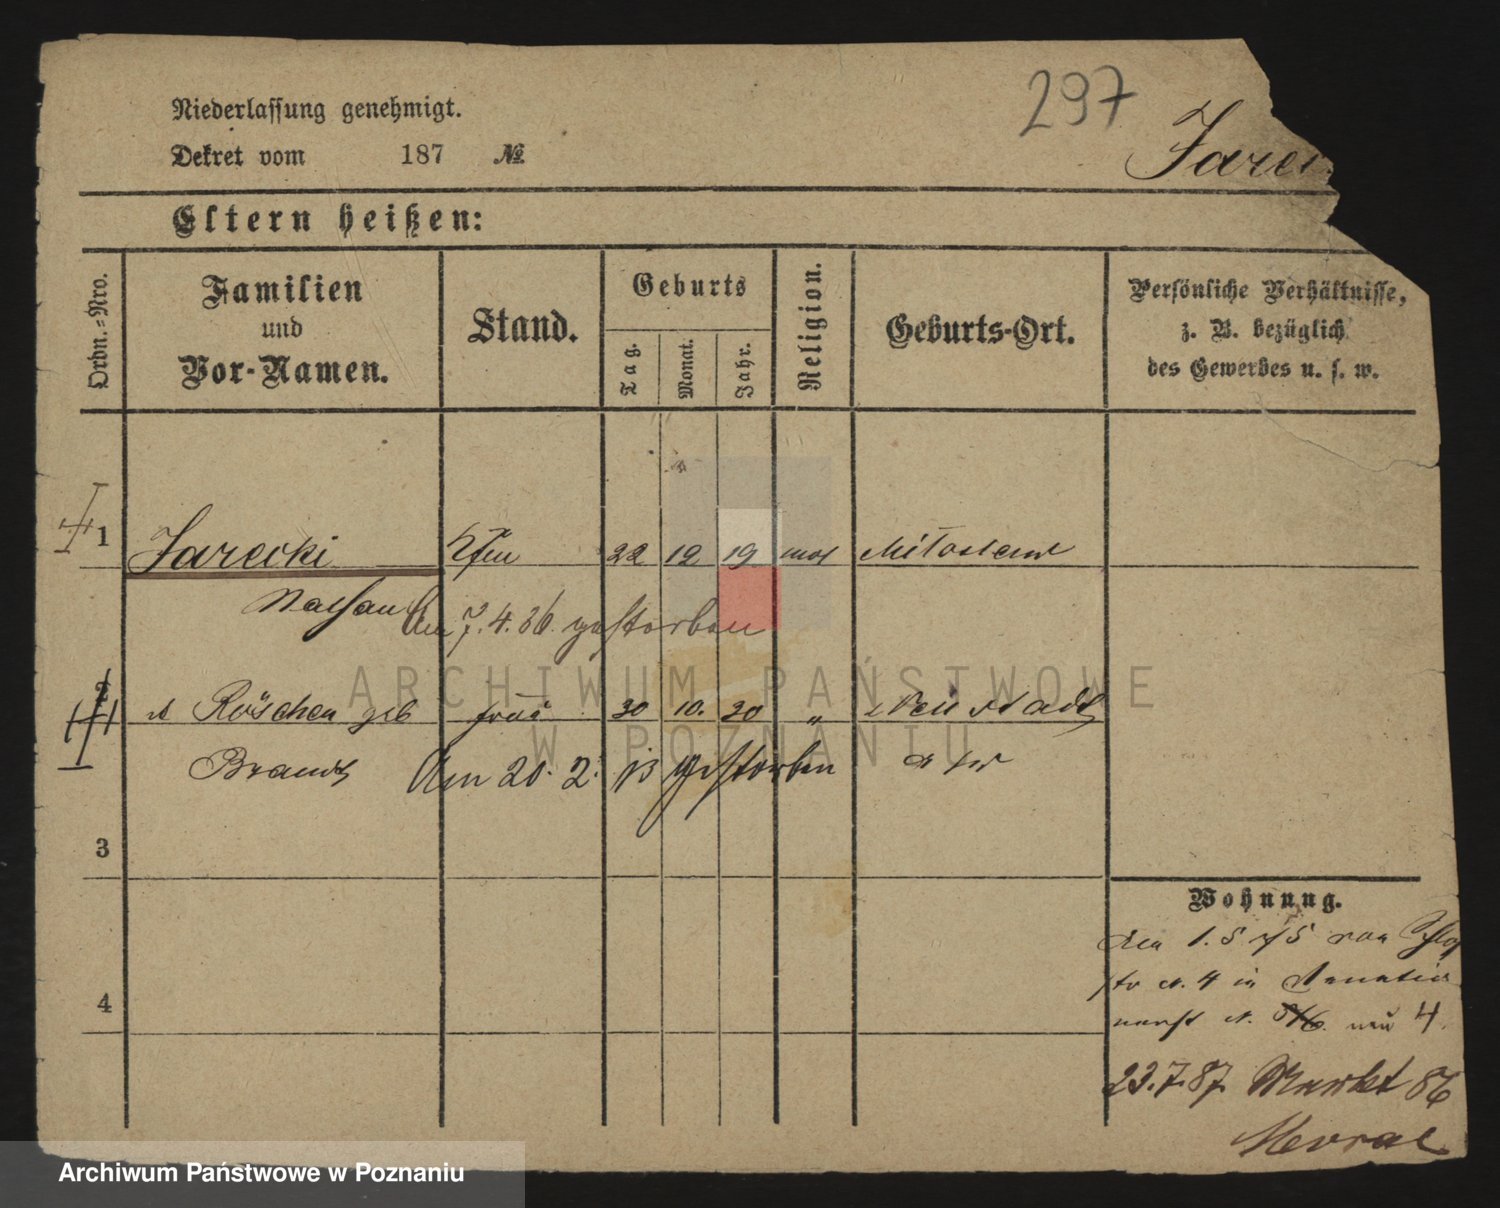 297
Niederlassung genehmigt.
Dekret vom 187 №
Jarec
Eltern heißen:
Ordn.-Nro.
Familien und Vor-Namen.
Stand.
Geburts
Tag.
Monat.
Jahr.
Religion.
Geburts-Ort.
Persönliche Verhältnisse,
z. B. bezüglich
des Gewerbes u. s. w.
1 Jarecki 22 12 19 mos Miloslaw
Nathan Am 7.4.86. gestorben
2 Röschen geb Frau 30 10. 20 " Neustadt
Brandt Am 20. 2. 13 gestorben
3
4
Wohnung.
den 1. 5 75 von
str N. 4 in
N. neu 4.
23.7.87. Markt 86
ARCHIWUM PAŃSTWOWE
W POZNANIU
Archiwum Państwowe w Poznaniu